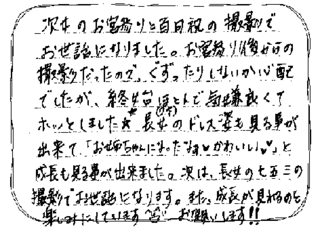 次女のお宮参りと百日祝の撮影で
お世話になりました。お宮参り後からの
撮影だったので、ぐずったりしないか心配
でしたが、終始ほとんどご機嫌良くて
ホッとしました★長女のドレス姿も見る事が
出来て「お姉ちゃんになったなぁ♡かわいい♡」と
成長も見る事が出来ました。次は、長女の七五三の
撮影でお世話になります。また、成長が見れるのを
楽しみにしています お願いします!!